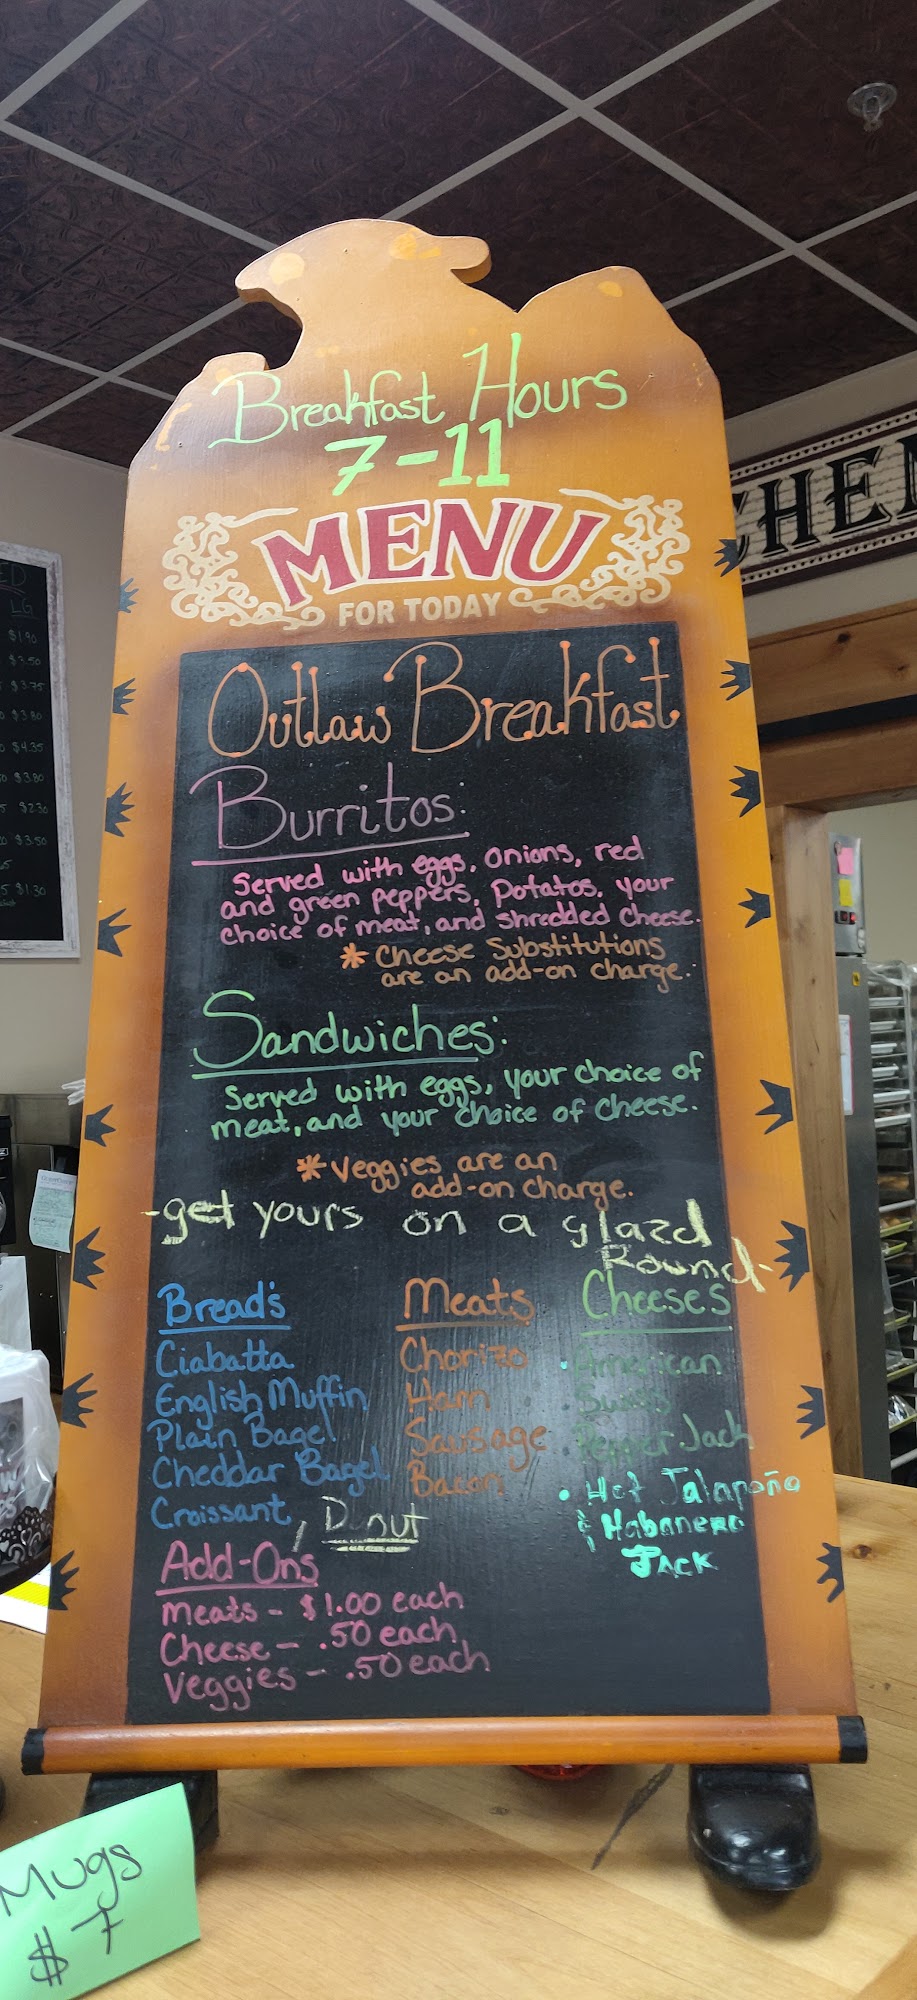 Breakfast Hours
7-11
MENU
FOR TODAY
Outlaw Breakfast
Burritos:
Served with eggs, onions, red
and green peppers, potatos, your
choice of meat, and shredded cheese.
* Cheese Substitutions
are an add-on charge.
Sandwiches:
Served with eggs, your choice of
meat, and your choice of cheese.
* Veggies are an
add-on charge.
-get yours on a glazd
Round-
Bread's
Ciabatta
English Muffin
Plain Bagel
Cheddar Bagel
Croissant, Donut
Meats
Chorizo
Ham
Sausage
Bacon
Cheeses
• American
• Swiss
• Pepper Jack
• Hot Jalapeño
& Habanero
JACK
Add-Ons
Meats - $1.00 each
Cheese - .50 each
Veggies - .50 each
Mugs
$7
HEN
LG
$1.90
$3.50
$3.75
$3.80
$4.35
$3.80
$2.30
$3.50
$1.30